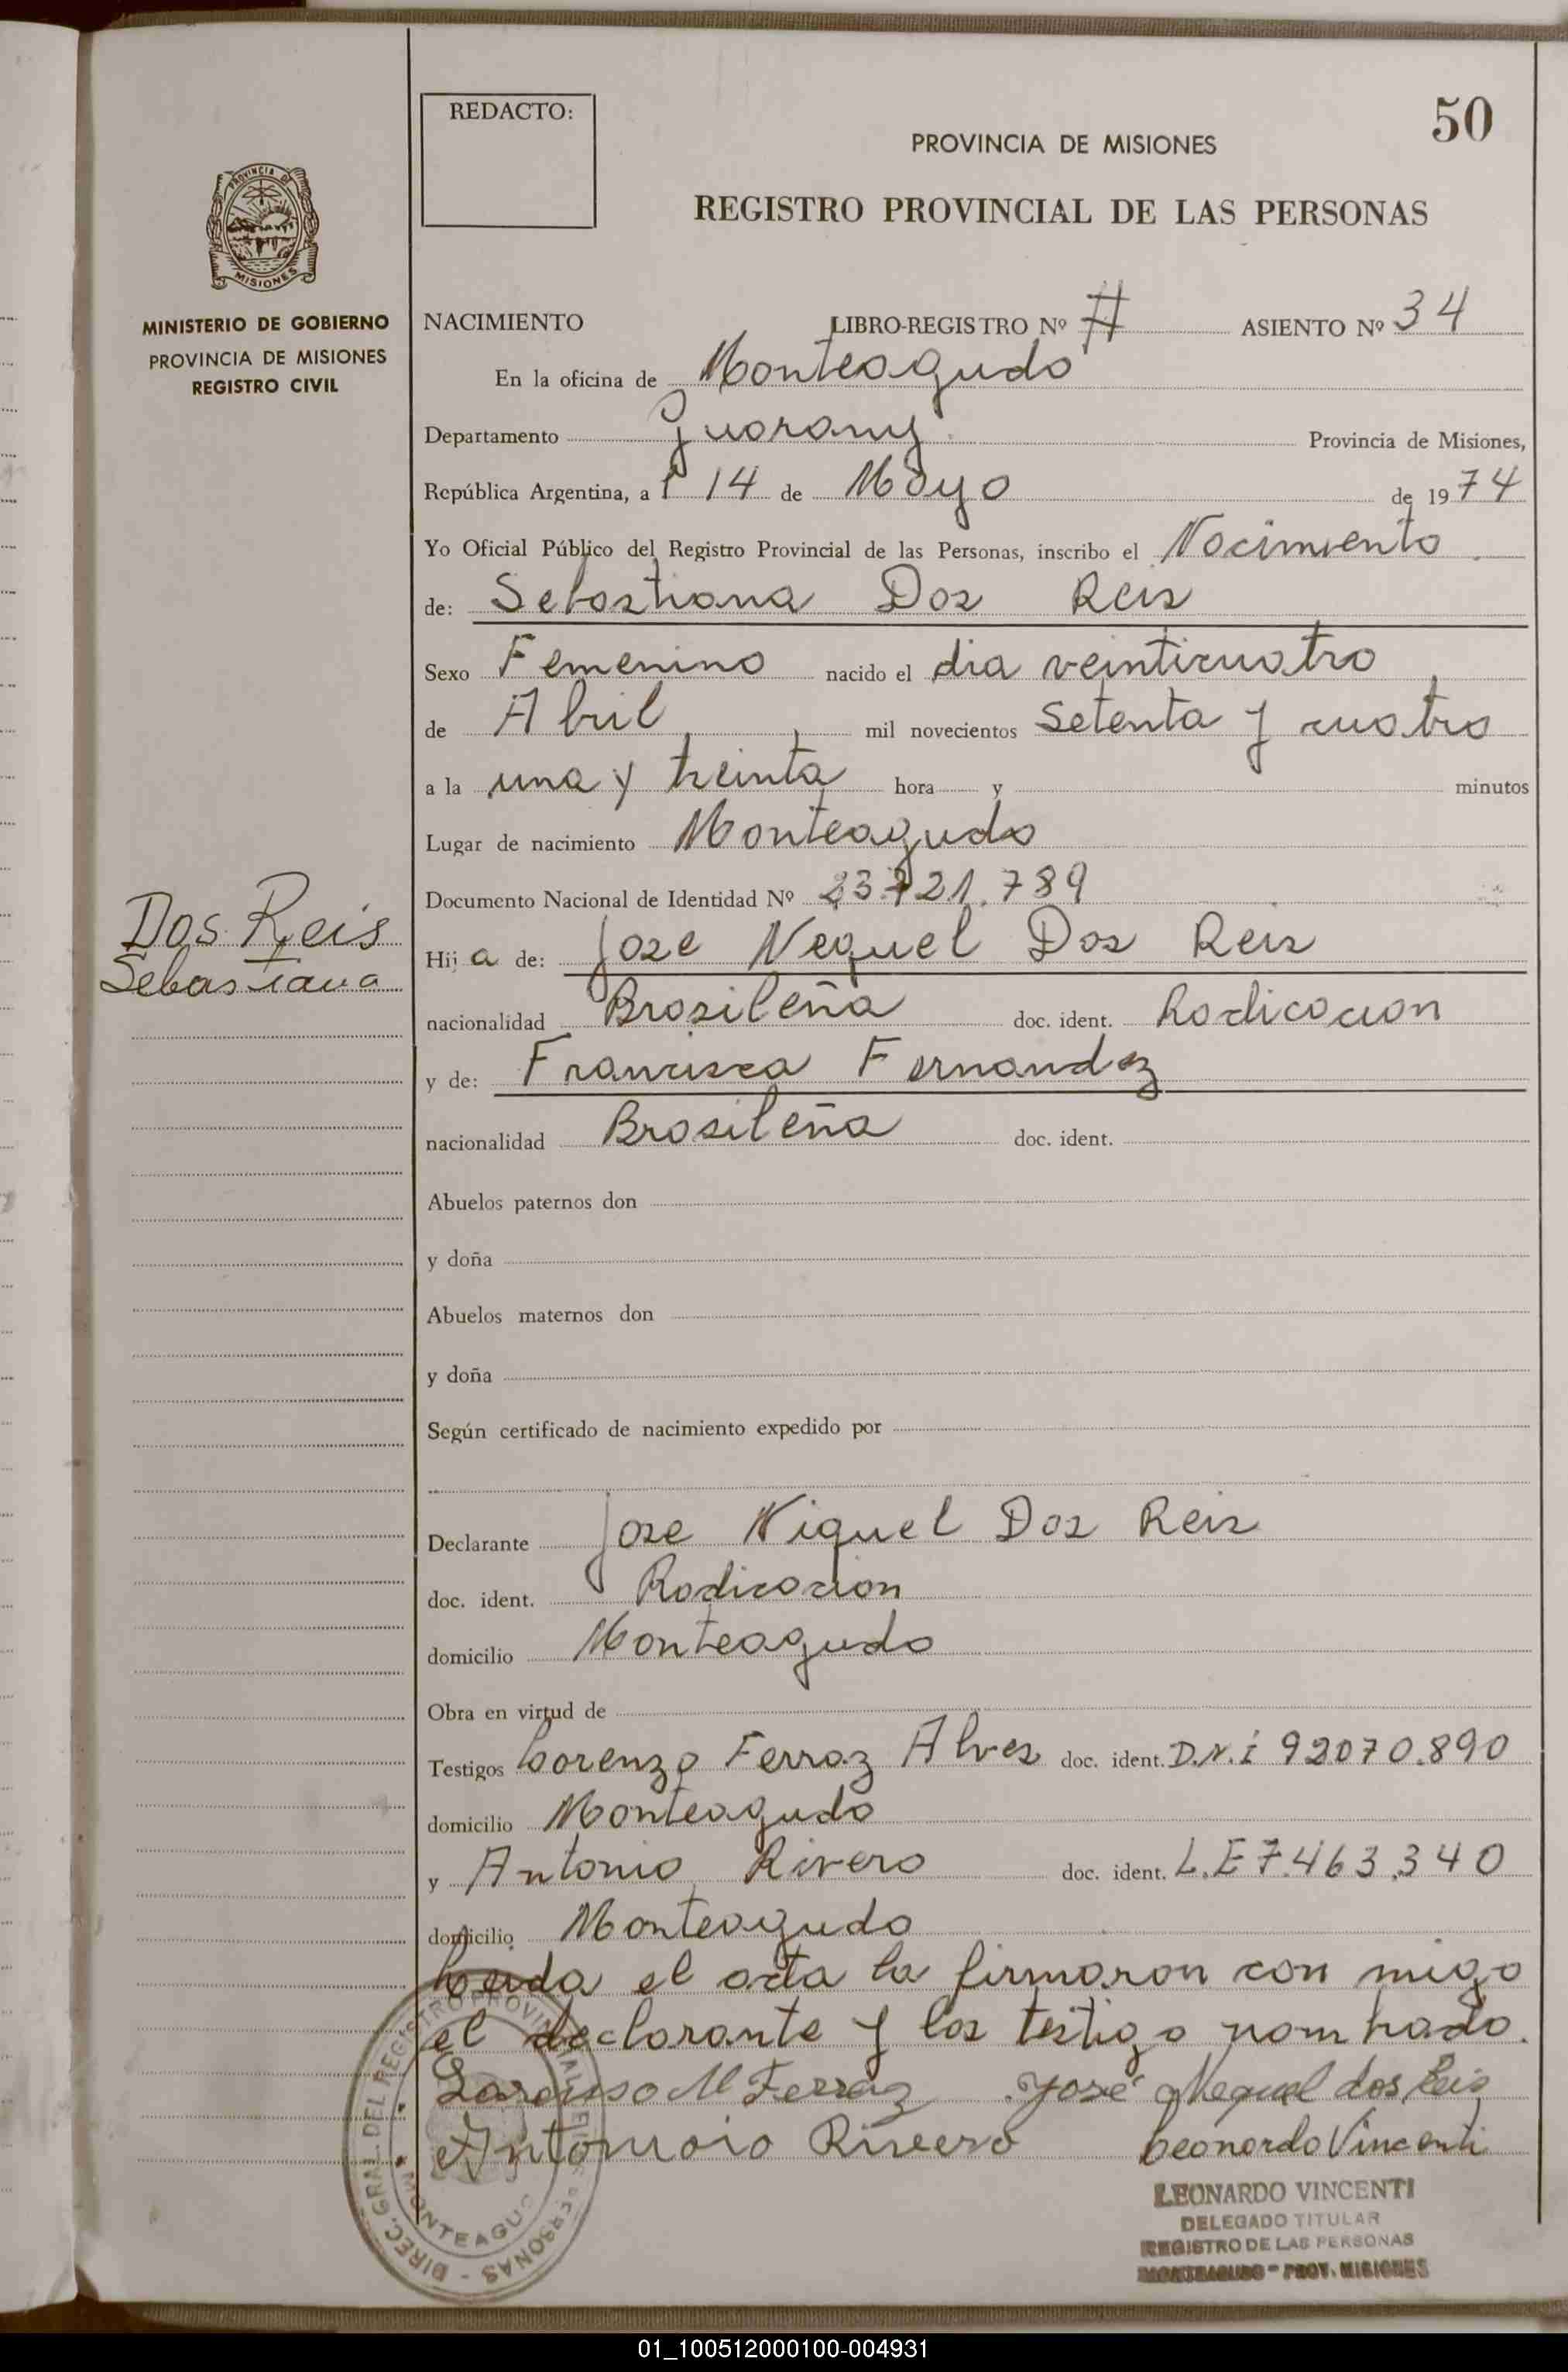 REDACTO:
50
PROVINCIA DE MISIONES
REGISTRO PROVINCIAL DE LAS PERSONAS
PROVINCIA DE
MISIONES
MINISTERIO DE GOBIERNO
PROVINCIA DE MISIONES
REGISTRO CIVIL
NACIMIENTO LIBRO-REGISTRO Nº ASIENTO Nº 34
En la oficina de Monteagudo
Departamento Guarany Provincia de Misiones,
República Argentina, a 14 de Mayo de 1974
Yo Oficial Público del Registro Provincial de las Personas, inscribo el Nacimiento
de: Sebastiana Dos Reis
Sexo Femenino nacido el dia veinticuatro
de Abril, mil novecientos setenta y cuatro
a la una y treinta hora y minutos
Lugar de nacimiento Monteagudo
Documento Nacional de Identidad Nº 23.721.789
Dos Reis
Sebastiana
Hij a de: Jose Neguel Dos Reis
nacionalidad Brasileña doc. ident. Radicacion
y de: Francisca Fernandez
nacionalidad Brasileña doc. ident.
Abuelos paternos don
y doña
Abuelos maternos don
y doña
Según certificado de nacimiento expedido por
Declarante Jose Niguel Dos Reis
doc. ident. Radicacion
domicilio Monteagudo
Obra en virtud de
Testigos Lorenzo Ferraz Alves doc. ident. D.N.i 92070.890
domicilio Monteagudo
y Antonio Rivero doc. ident. L.E 7.463.340
domicilio Monteagudo
Leida el acta la firmaron con migo
el declarante y los testigo nombrado.
M Ferraz José Neguel dos Reis
Rivero Leonardo Vincenti
DIREC. GRAL. DEL REGISTRO PROVINCIAL DE LAS PERSONAS - MONTEAGUDO
LEONARDO VINCENTI
DELEGADO TITULAR
REGISTRO DE LAS PERSONAS
MONTEAGUDO - PROV. MISIONES
01_100512000100-004931